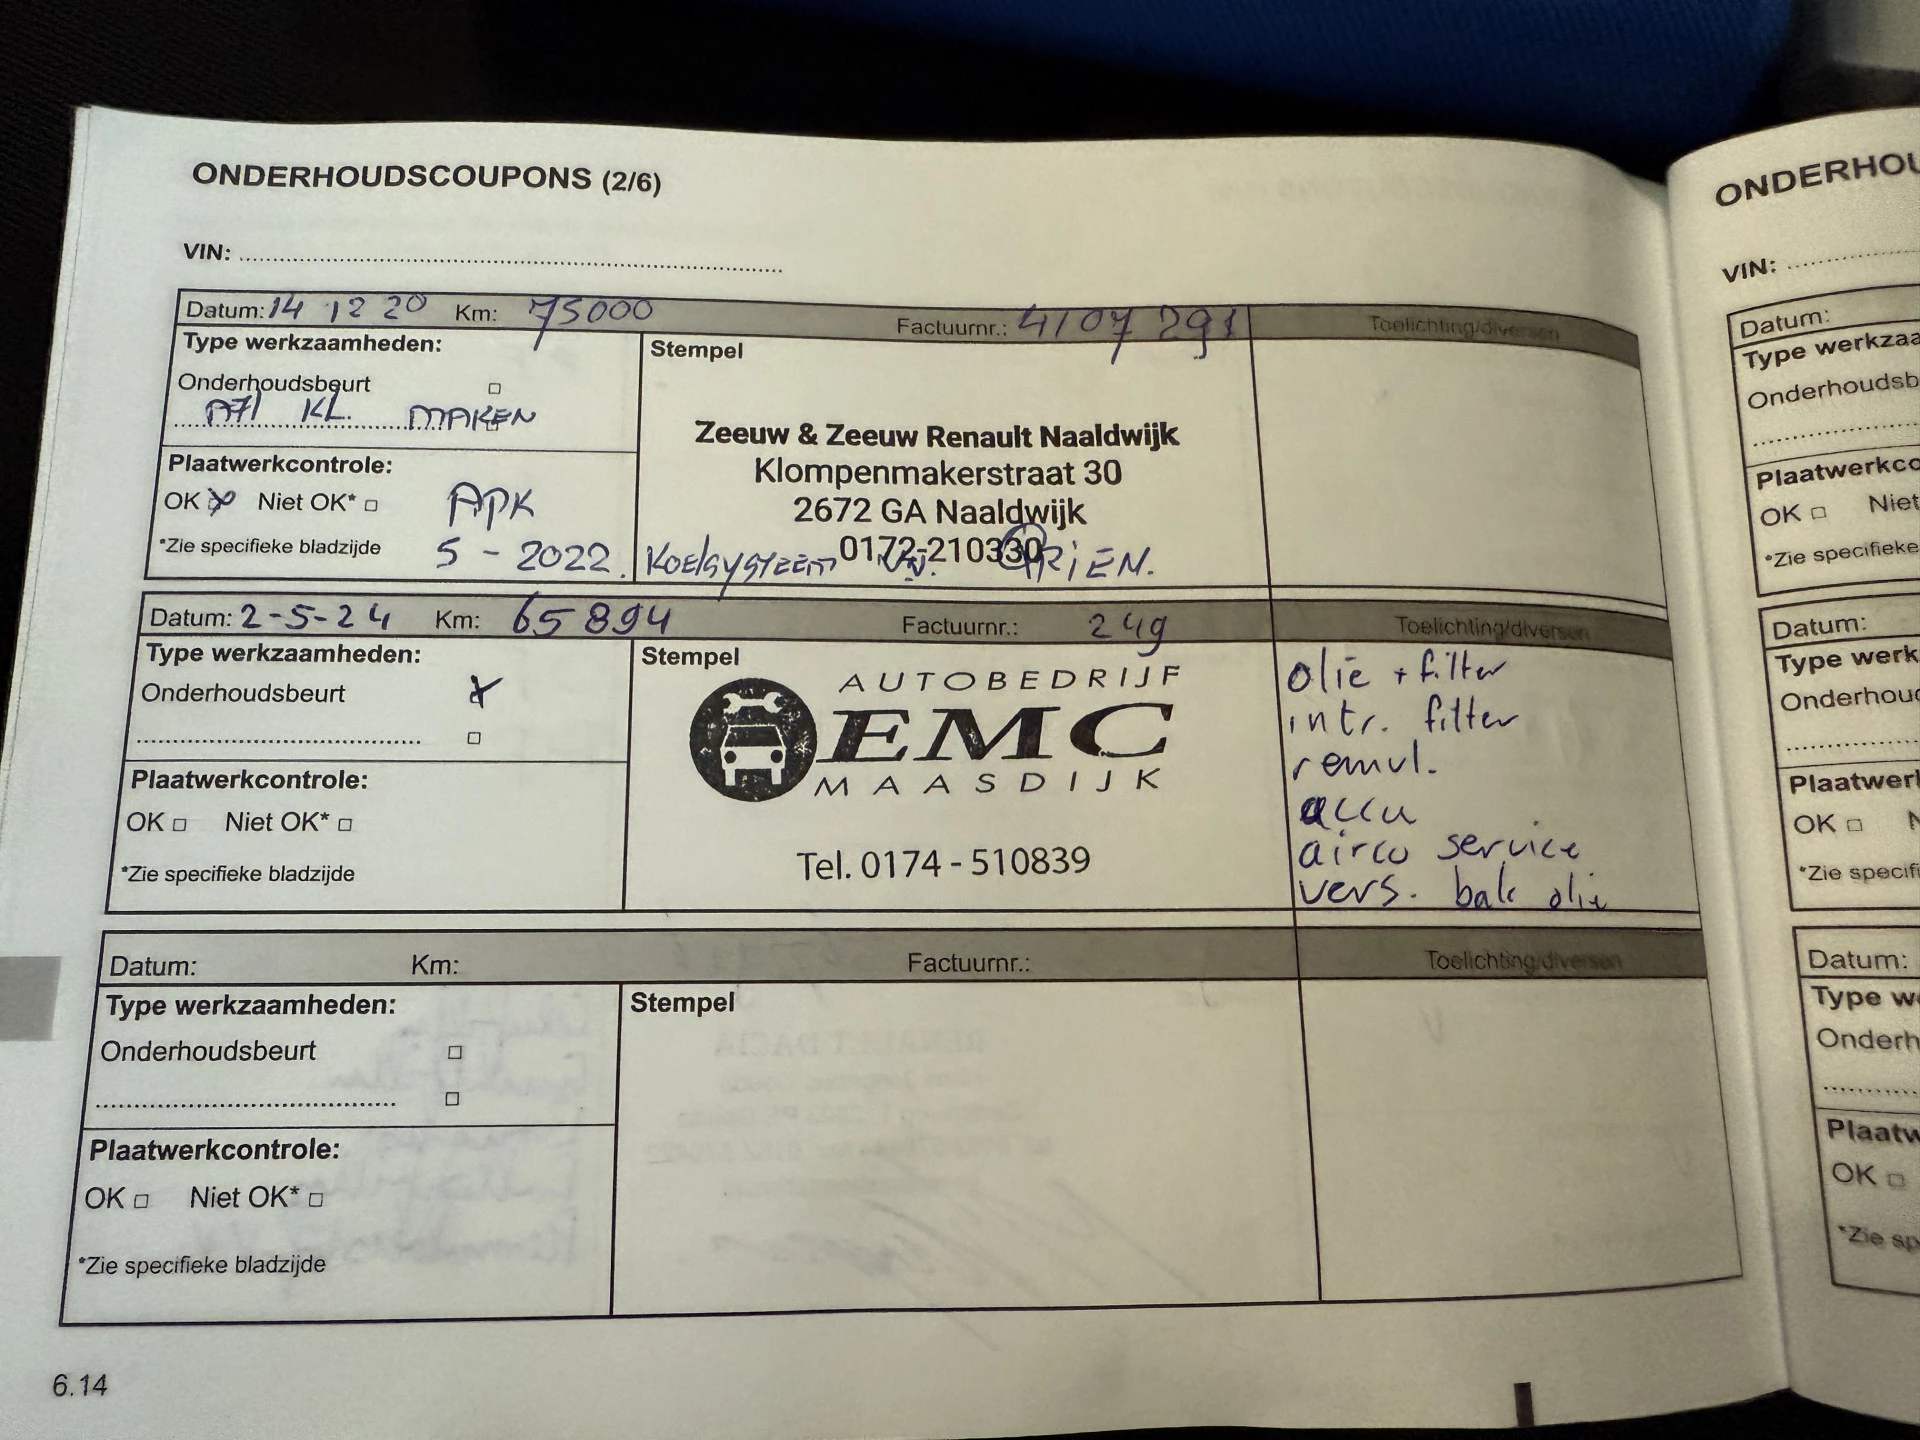 ONDERHOUDSCOUPONS (2/6)
VIN:
Datum: 14 12 20 Km: 75000 Factuurnr.: 4107291 Toelichting/diversen
Type werkzaamheden:
Stempel
Onderhoudsbeurt
KL. MAKEN
Zeeuw & Zeeuw Renault Naaldwijk
Klompenmakerstraat 30
2672 GA Naaldwijk
0172-210330
Plaatwerkcontrole:
OK Niet OK* APK
*Zie specifieke bladzijde 5 - 2022.
Koelsysteem
Datum: 2-5-24 Km: 65894 Factuurnr.: 249 Toelichting/diversen
Type werkzaamheden:
Stempel
Onderhoudsbeurt
AUTOBEDRIJF
EMC
MAASDIJK
Tel. 0174 - 510839
olie + filter
intr. filter
remvl.
accu
airco service
vers. bak olie
Plaatwerkcontrole:
OK Niet OK*
*Zie specifieke bladzijde
Datum: Km: Factuurnr.: Toelichting/diversen
Type werkzaamheden:
Stempel
Onderhoudsbeurt
Plaatwerkcontrole:
OK Niet OK*
*Zie specifieke bladzijde
6.14
ONDERHOU
VIN:
Datum:
Type werkzaa
Onderhoudsb
Plaatwerkco
OK Niet
*Zie specifieke
Datum:
Type werk
Onderhoud
Plaatwerk
OK
*Zie specif
Datum:
Type we
Onderh
Plaatw
OK
*Zie sp